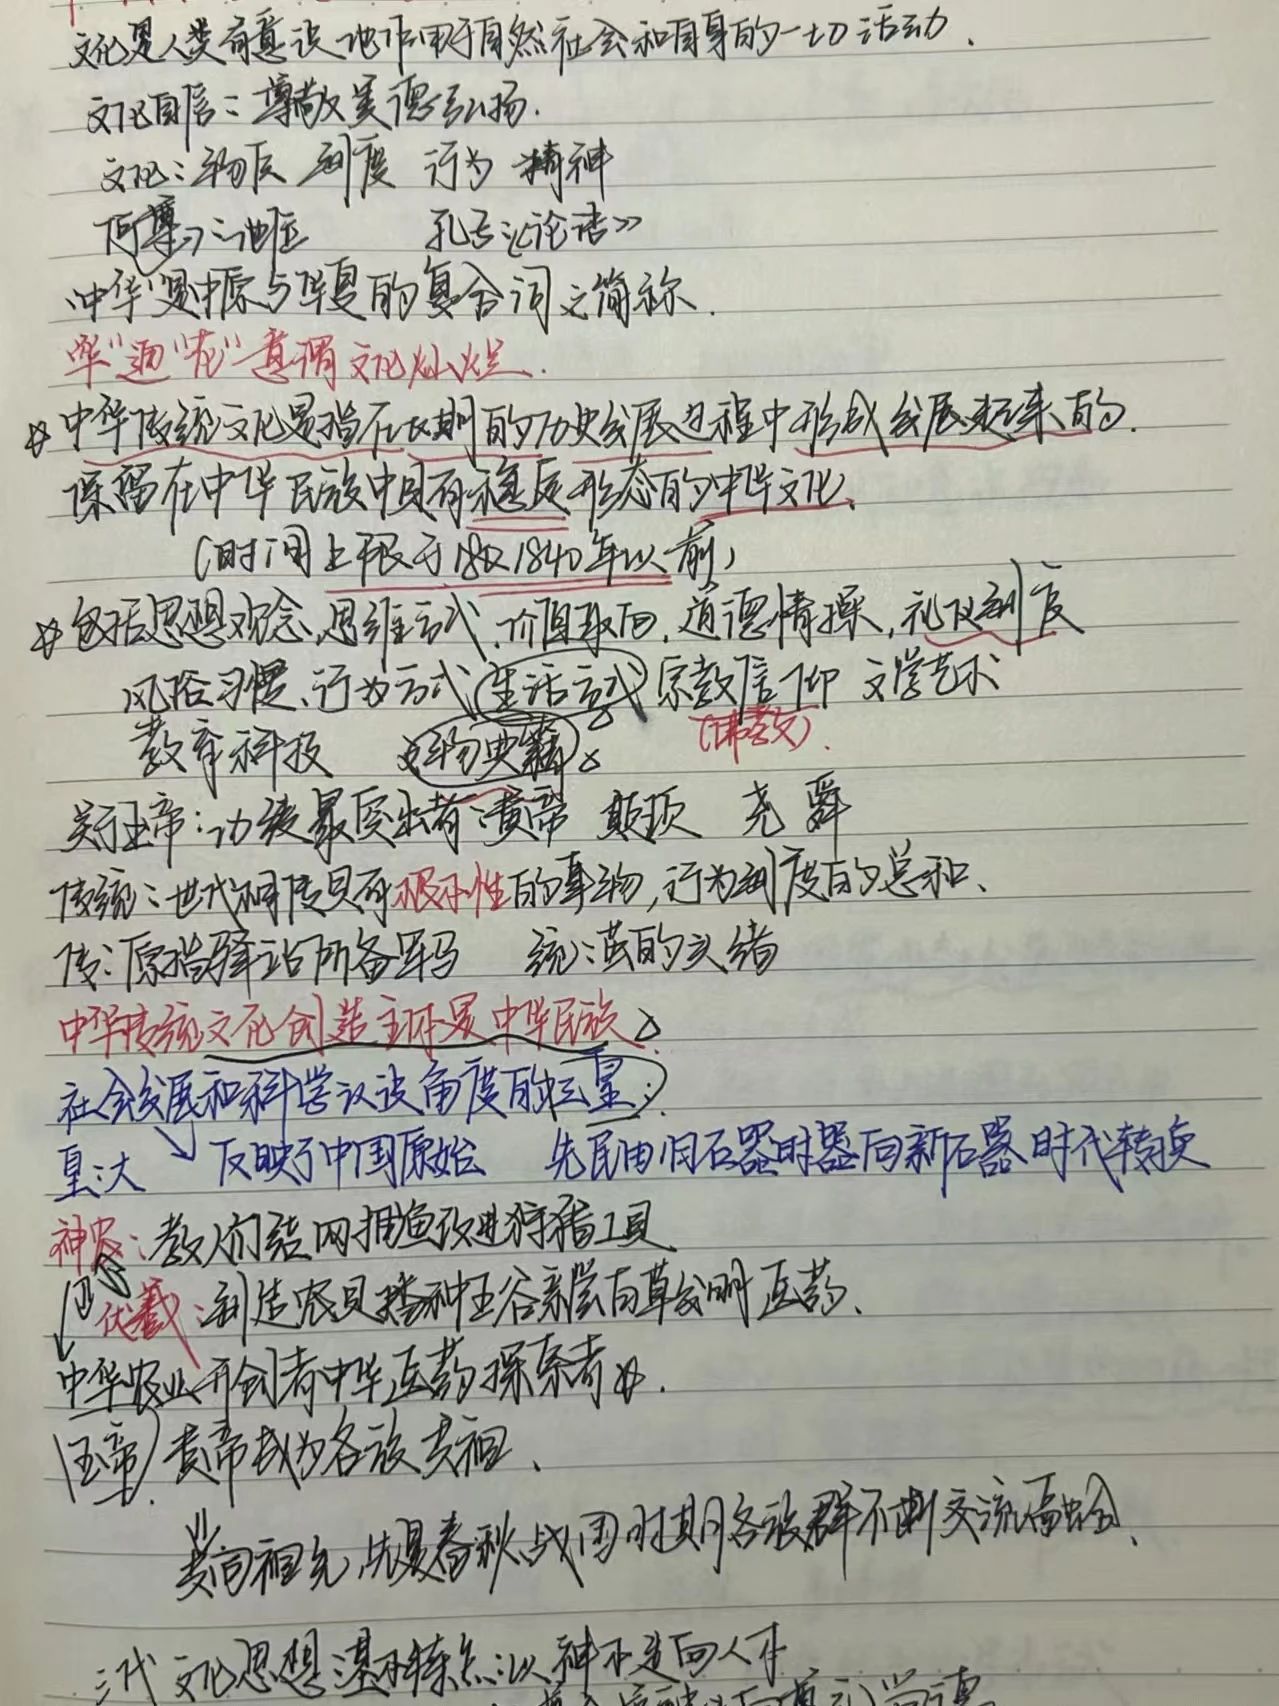 文化是人类有意识地作用于自然社会和自身的一切活动.
文化自信:尊敬美德弘扬.
文化:物质 制度 行为 精神
孔子《论语》
"中华"是中原与华夏的复合词之简称.
"华"通"花"意谓文化灿烂.
中华传统文化是指在长期的历史发展过程中形成发展起来的.
保留在中华民族中具有稳定形态的中华文化、
(时间上限于1840年以前)
包括思想观念、思维方式、价值取向,道德情操,礼仪制度
风俗习惯、行为方式 生活方式 宗教信仰 文学艺术
(佛教).
教育科技 文物典籍
五帝:功绩最突出者:黄帝 颛顼 尧 舜
传统:世代相传具有根本性的事物,行为制度的总和、
传:原指驿站所备车马 统:茧的头绪
中华传统文化创造主体是中华民族
社会发展和科学认识角度的三皇:
皇:大 反映了中国原始 先民由旧石器时器向新石器时代转换
神农:教人们结网捕鱼改进狩猎工具
伏羲:制造农具播种五谷亲尝百草发明医药、
中华农业开创者中华医药探索者.
(五帝) 黄帝成为各族共祖、
共同祖先,先是春秋战国时期各族群不断交流融合、
三代文化思想基本特点:以神本走向人本